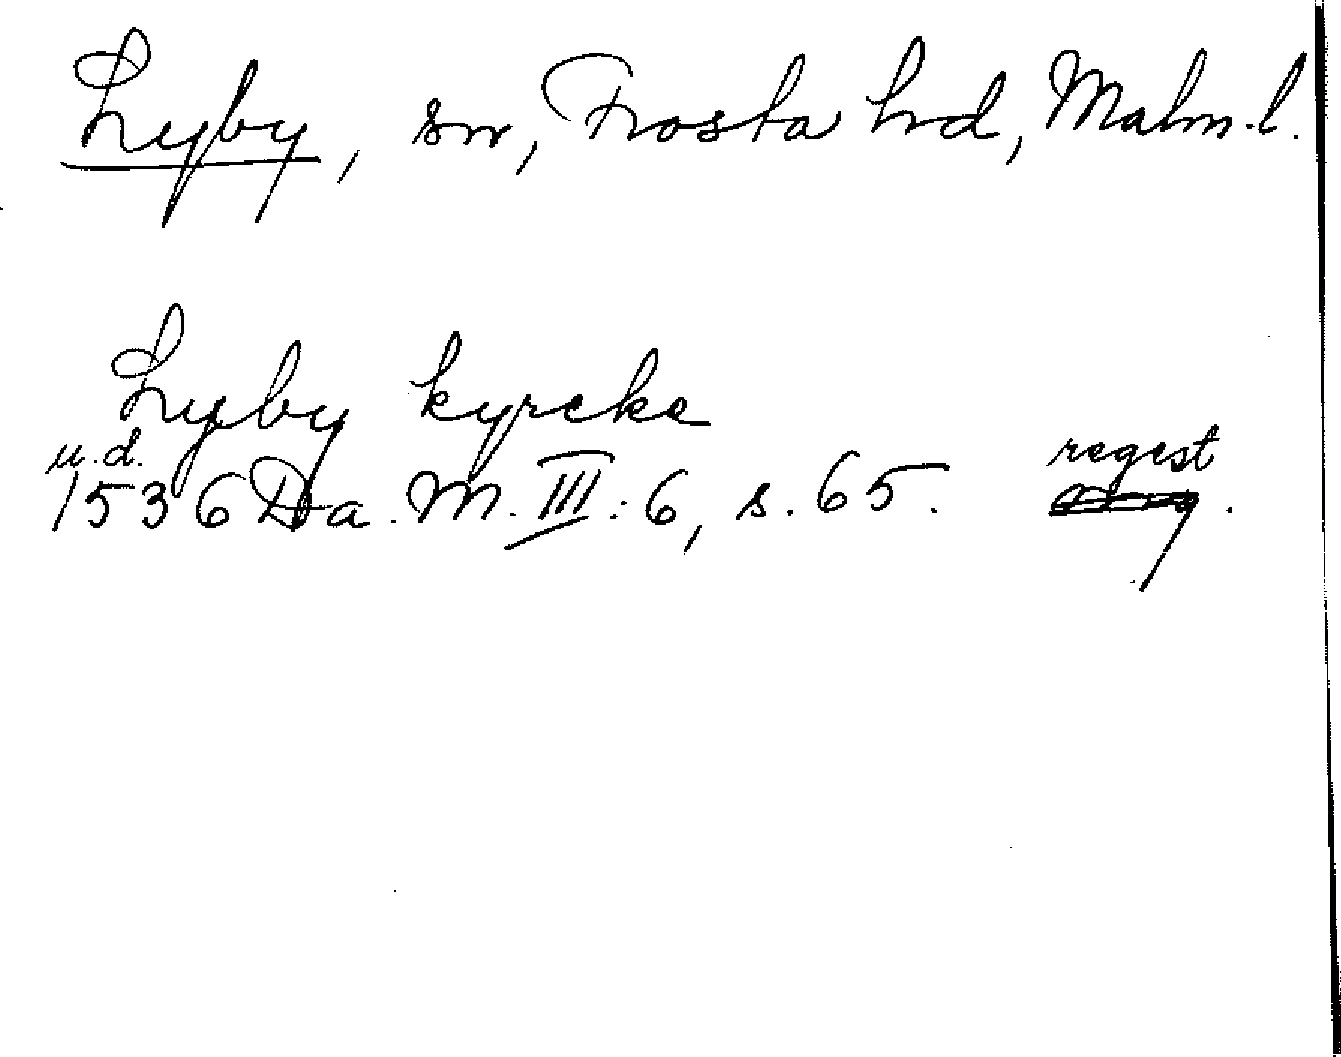 Lyby, sn, Frosta hd, Malm.l.
Lyby kyrcke
u.d. regest
1536 Da. M. III: 6, s. 65.